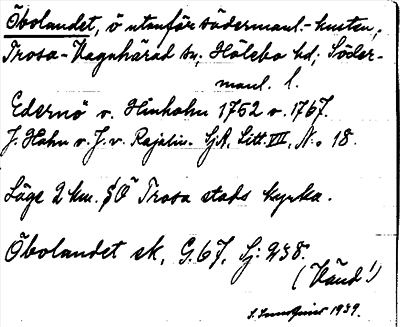 Öbolandet, ö utanför södermanl.-kusten,
Trosa-Vagnhärad sn, Hölebo hd, Söder-
manl. l.
Edernö v. Hinholm 1752 v. 1767.
J. Hahn v. J. v. Rajalin. SjA, Litt. VIII, N:o 18.
Läge 2 km. SÖ Trosa stads kyrka.
Öbolandet sk, G. 67, Sj: 238.
(Vänd!)
1939.